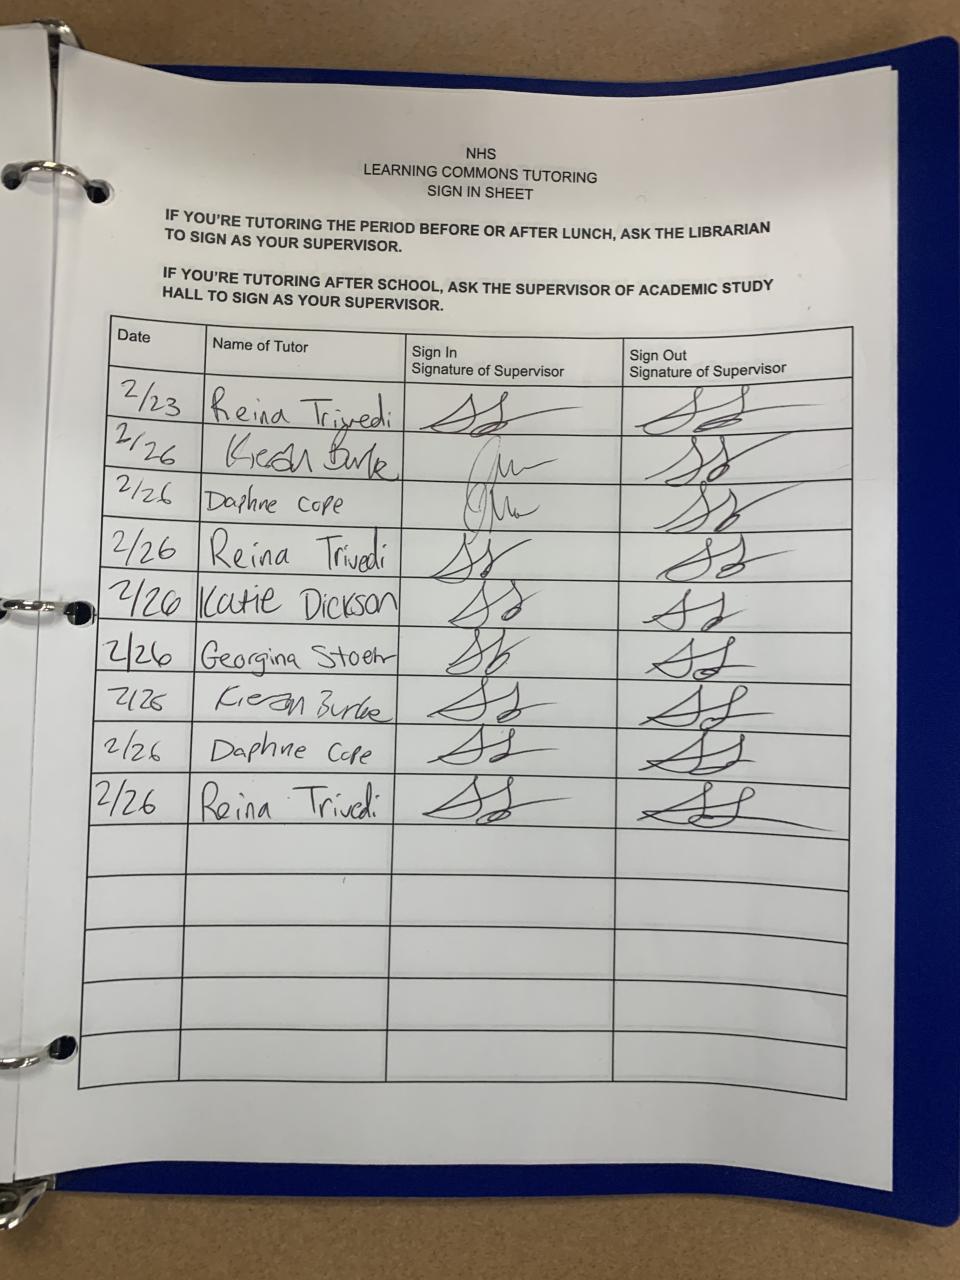 NHS
LEARNING COMMONS TUTORING
SIGN IN SHEET
IF YOU'RE TUTORING THE PERIOD BEFORE OR AFTER LUNCH, ASK THE LIBRARIAN
TO SIGN AS YOUR SUPERVISOR.
IF YOU'RE TUTORING AFTER SCHOOL, ASK THE SUPERVISOR OF ACADEMIC STUDY
HALL TO SIGN AS YOUR SUPERVISOR.
Date Name of Tutor Sign In Signature of Supervisor Sign Out Signature of Supervisor
2/23 Reina Trivedi
2/26 Kieran Burke
2/26 Daphne Cope
2/26 Reina Trivedi
2/26 Katie Dickson
2/26 Georgina Stoehr
2/26 Kieran Burke
2/26 Daphne Cope
2/26 Reina Trivedi